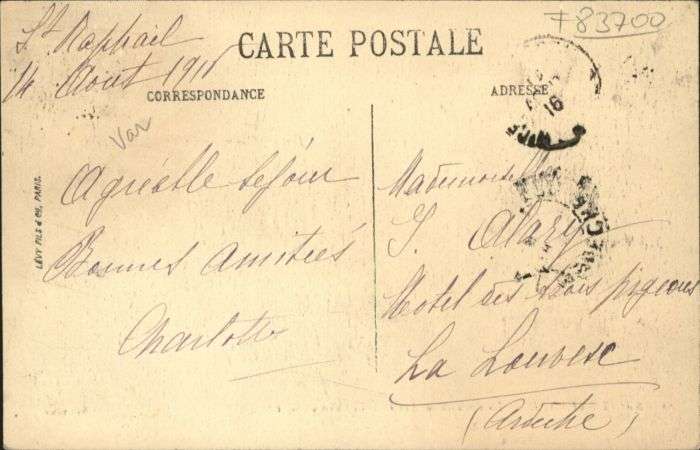 F 83700
St Raphaël
14 Août 1916
CARTE POSTALE
CORRESPONDANCE
ADRESSE
Var
Agréable séjour
Bonnes amitiés
Charlotte
Mademoiselle
S. Alary
Hotel des trois pigeons
La Louvesc
(Ardèche)
LÉVY FILS & Cie, PARIS.
NICE
16